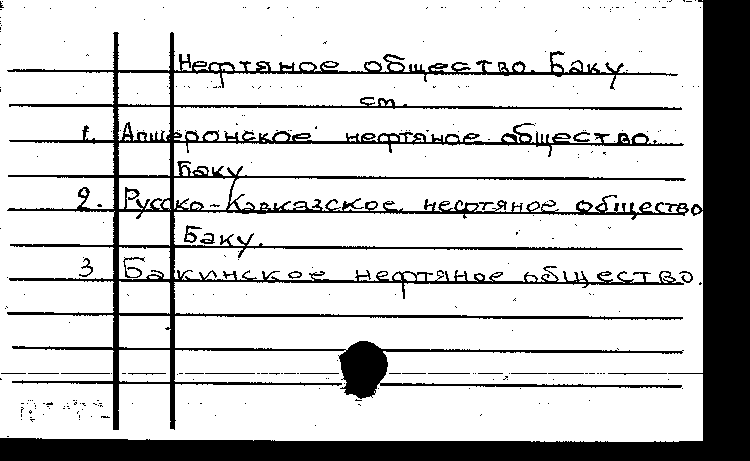 Нефтяное общество. Баку
ст.
1. Апшеронское нефтяное общество.
Баку
2. Русско-Кавказское нефтяное общество
Баку.
3 Бакинское нефтяное общество.